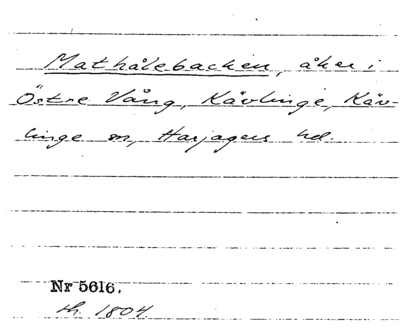 Mathålebacken, åker i
Östre Vång, Kävlinge, Käv-
linge sn, Harjagers hd.
Nr 5616.
sh. 1804